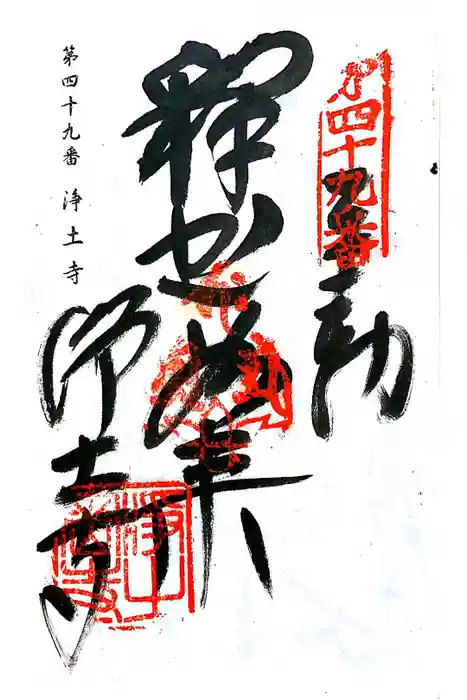 第四十九番
奉
釋迦如来
浄土寺
第四十九番 浄土寺